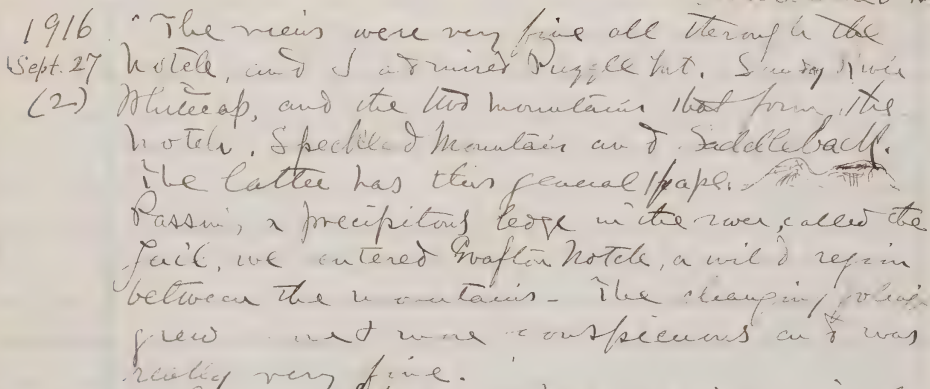 1916 The views were very fine all through the
Sept. 27 Notch, and I admired Puzzle Mt. Sunday River
(2) Whitecap, and the two mountains that form the
Notch, Speckled Mountain and Saddleback.
The latter has this general shape.
Passing a precipitous ledge in the river, called the
Jail, we entered Grafton Notch, a wild region
between the mountains - The changing foliage
grew more conspicuous and was
really very fine.